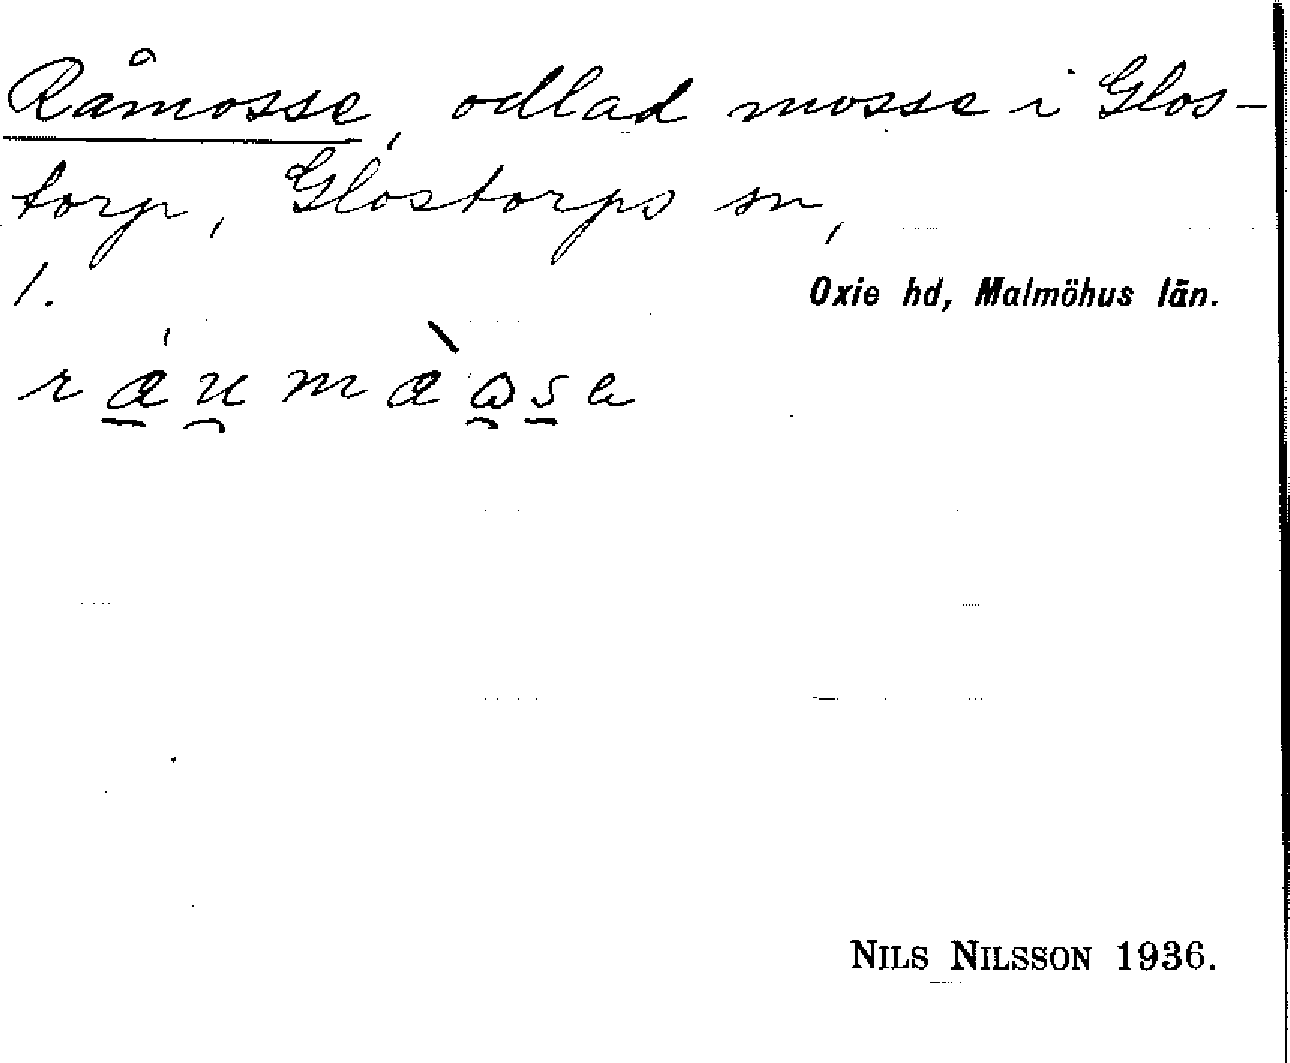 Råmosse, odlad mosse i Glos-
torp, Glostorps sn,
1.
Oxie hd, Malmöhus län.
NILS NILSSON 1936.